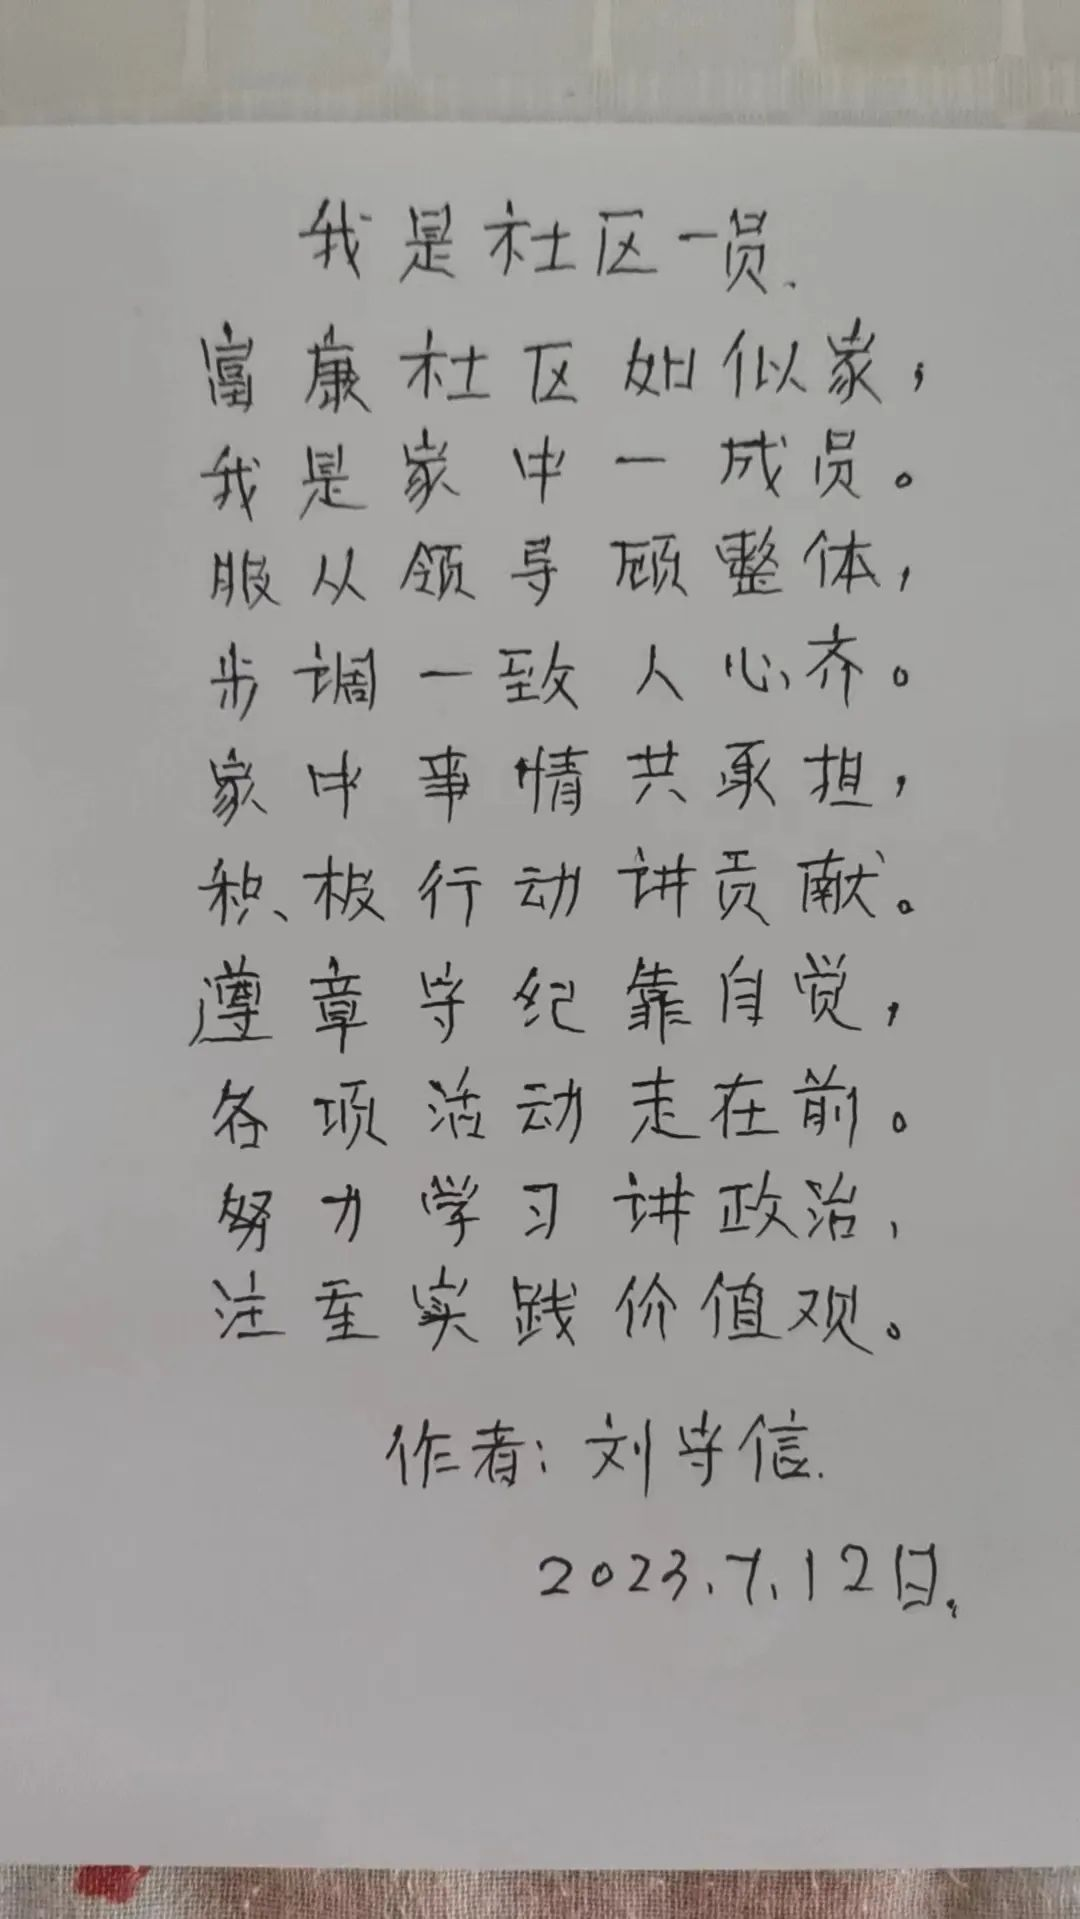 我是社区一员.
富康社区如似家,
我是家中一成员。
服从领导顾整体,
步调一致人心齐。
家中事情共承担,
积极行动讲贡献。
遵章守纪靠自觉,
各项活动走在前。
努力学习讲政治,
注重实践价值观。
作者:刘守信.
2023.7.12日.